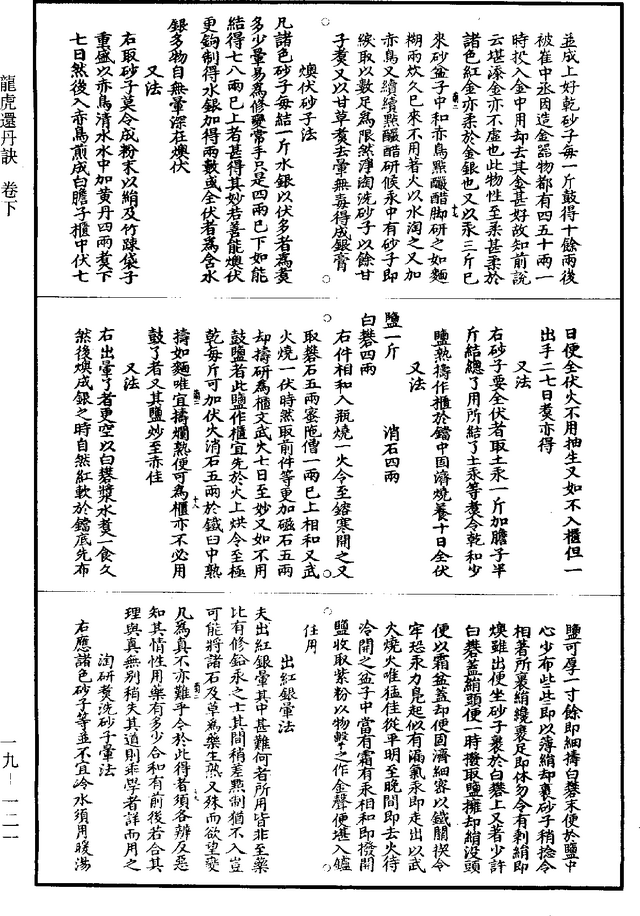 並成上好乾砂子每一斤鼓得十餘兩後
被崔中丞因造金器物都有四五十兩一
時投入金中用却去其金甚好故知前說
云堪添金亦不虛也此物性至柔甚柔於
諸色紅金亦柔於金銀也又以汞三斤已
來砂盆子中和赤鳥點釅醋脚研之如麵
糊兩炊久已來不用著火以水淘之又加
赤鳥又續續點釅醋研候汞中有砂子即
絞取以數足為限然淨淘洗砂子以餘甘
子煑又以甘草煑去暈無毒得成銀膏
燠伏砂子法
凡諸色砂子每結一斤水銀以伏多者為煑
多少暈易為修變常手只是四兩已下如能
結得七八兩已上者甚得其妙若善能燠伏
更鉤制得水銀加得兩數或全伏者為含水
銀多物自無暈深在燠伏
又法
右取砂子莫令成粉末以絹及竹踈袋子
重盛以赤鳥清水水中加黃丹四兩煑下
七日然後入赤鳥煎成白膽子櫃中伏七
龍虎還丹訣 卷下
日便全伏火不用抽生又如不入櫃但一
出手二七日煑亦得
又法
右砂子要全伏者取土汞一斤加膽子半
斤結總了用所結了土汞等煑令乾和少
鹽熟擣作櫃於鐺中固濟燒養十日全伏
又法
鹽一斤 消石四兩
白礬四兩
右件相和入瓶燒一火令至鎔寒開之又
取礬石五兩蜜陁僧一兩已上相和又武
火燒一伏時然取前件等更加磁石五兩
却擣研為櫃文武火七日至妙又如不用
鼓鹽者此鹽作櫃宜先於火上烘令至極
乾每斤可加伏火消石五兩於鐵臼中熟
擣如麵唯宜擣爛熟便可為櫃亦不必用
鼓了者又其鹽炒至赤佳
又法
右出暈了者更空以白礬漿水煑一食久
然後燠成銀之時自然紅軟於鐺底先布
鹽可厚一寸餘即細擣白礬末便於鹽中
心少布些些即以薄絹却裹砂子稍捻令
相著所裹絹纔裹足即休勿令有剩絹即
燠雖出便坐砂子裹於白礬上又著少許
白礬蓋絹頭便一時撥取鹽擁却絹沒頭
便以霜盆蓋却便固濟細密以鐵關楔令
牢恐汞力㲠起似有滿氣汞即走出以武
火燒火唯猛佳從平明至晚間即去火待
冷開之盆子中當有霜有汞相和即撥開
鹽收取紫粉以物擊之作金聲便堪入爐
任用
出紅銀暈法
夫出紅銀暈其中甚難何者所用皆非至藥
比有修鉛汞之士其間稍差㸃制猶不入豈
可能將諸石及草為藥生熟又殊而欲望變
凡為真不亦難乎今於此得者須各辨及惡
知其情性用藥有多少合和有前後若合其
理與真無别稍失其道則乖學者詳而用之
淘研煑洗砂子暈法
右應諸色砂子等並不宜冷水須用暖湯
一九－一二一